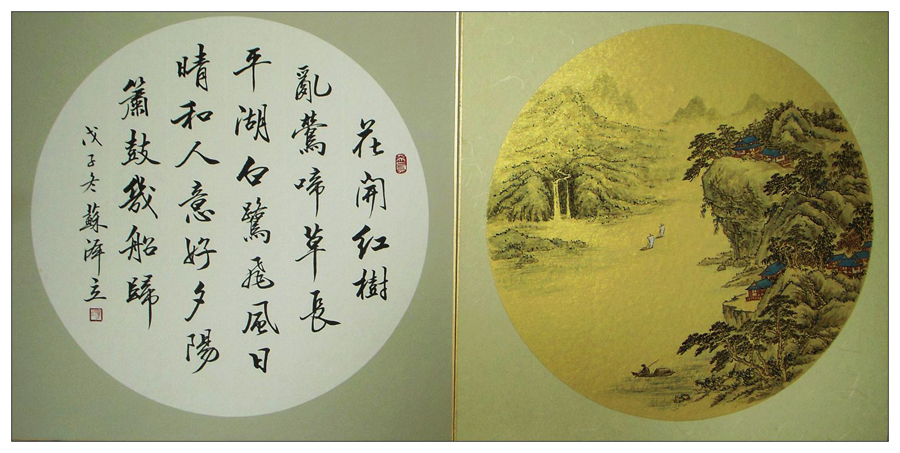 花開红樹
亂鶯啼草長
平湖白鷺飛風日
晴和人意好夕陽
簫鼓幾船歸
戊子冬蘇泽立